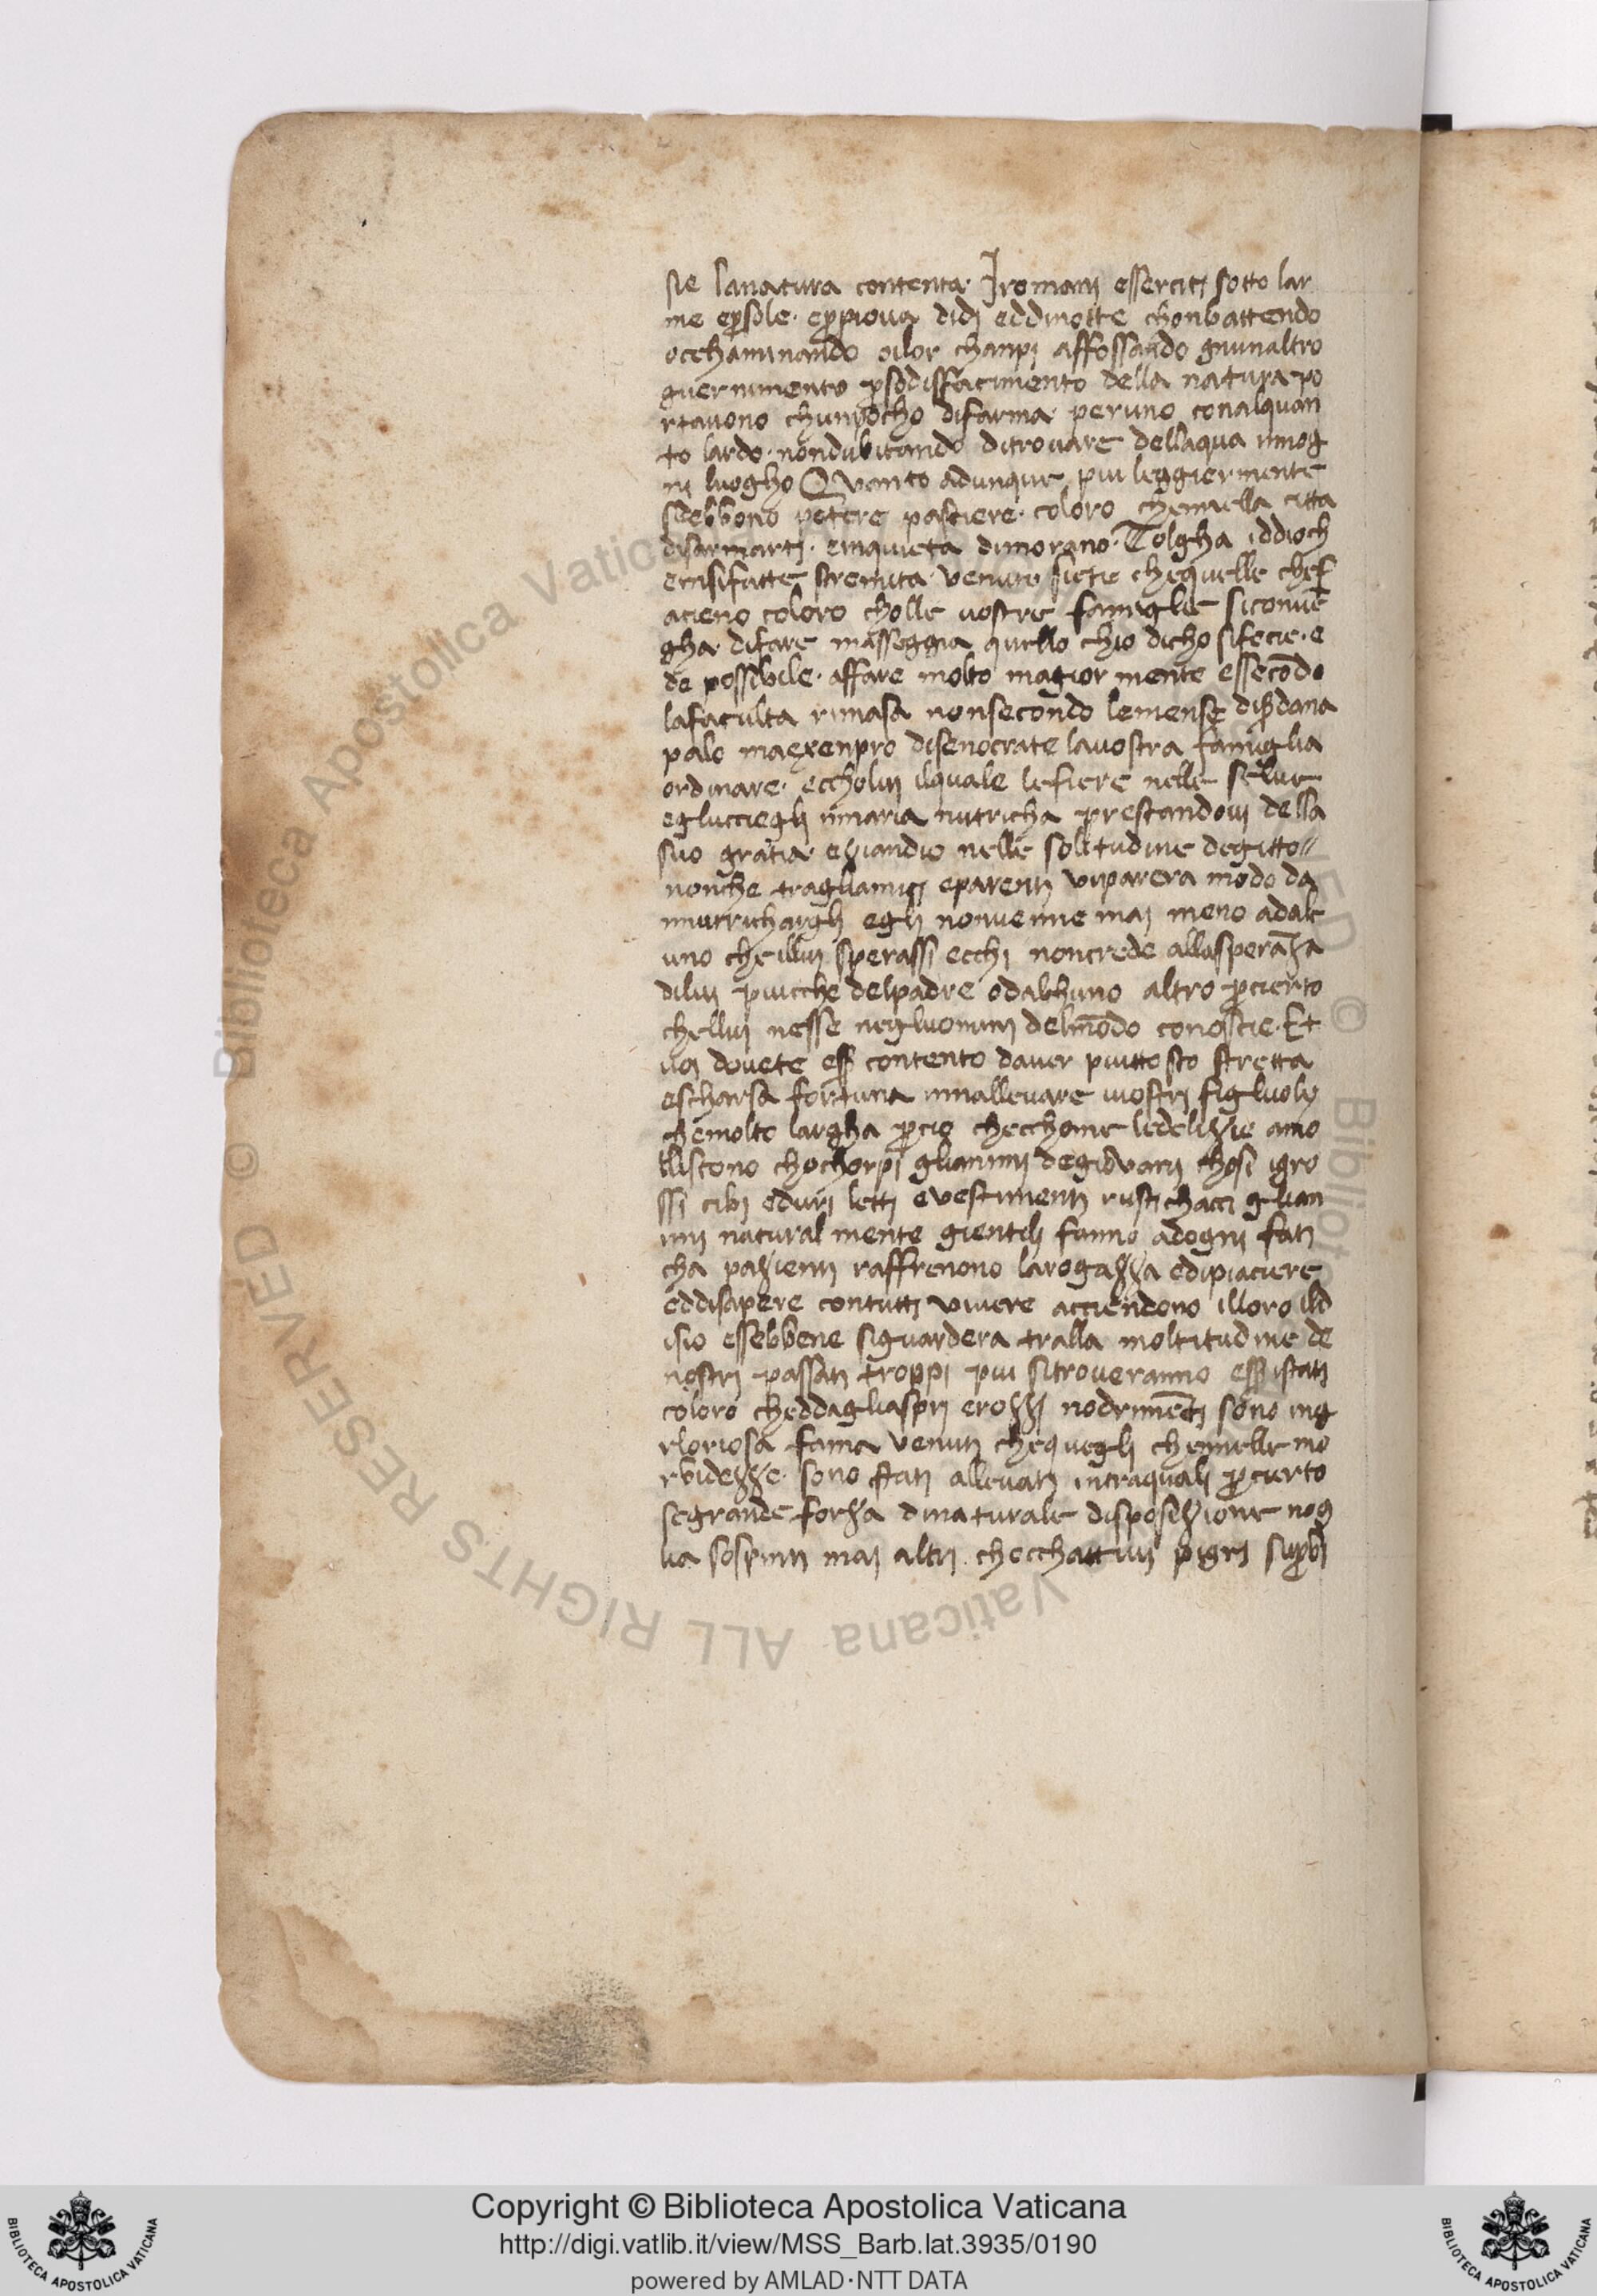 sie lanatura contenta· Iromanj essercitj sotto lar
me eꝑsole· eꝑpioua didj eddinotte chonbattendo
occhaminando oilor chanpj affossando gnunaltro
guernimento ꝑsodisfacimento della natura po
rtauono chunpocho difarina· peruno conalquan
to lardo· nondubitando ditrouare dellaqua inног
nj luogho Quanto adunque piu leggiermente
sidebbono potere pasciere· coloro chenella citta
disarmartj· einquieta dimorano· Tolgha iddioch
ensifatte stremita· venuto siete chequelle chef
acieno coloro cholle uostre famiglie siconuē
gha· difare masseggia quello chio dicho sifecie· e
de possibile· affare molto magior mente essecōdo
lafaculta rimasa nonsecondo lemense disꝑdana
palo maexenpro disenocrate lauostra famiglia
ordinare· eccholuj ilquale lefiere nelle selue
egluccieglj innaria nutricha prestandouj della
suo gratia· eziandio nelle solitudine degitto//
nonche tragliamicj eparentj viparera modo da
nnutricharglj eglj nonuenne maj meno adalc
uno cheilluj sperassi ecchi noncrede allasperāza
diluj piucche delpadre odalchuno altro ꝑcierto
chelluj nesse negluominj delmōdo conoscie· Et
uoj douete esser contento dauer piuttosto stretta
escharsa fortuna innalleuare iuostrj figluolj
chemolto largha ꝑcio checchome ledelizie amo
lliscono chochorpi glianimj degiovanj chosi igro
ssi cibj edurj lettj evestimentj rustichacci glian
imj natural mente gientilj fanno adognj fati
cha pazientj raffrenono larogāzza edipiaciere
eddisapere contuttj viuere acciendono illoro ild
isio essebbene siguardera tralla moltitudine de
nostrj passatj troppj piu sitroveranno essi statj
coloro cheddagliasprj erozzi nodrimētj sono ing
rloriosa fama venutj chequeglj chennelle mo
rbidezze· sono statj alleuatj intraqualj ꝑcierto
segrande forza dinaturale disposizione nog
lia sospintj maj altrj checchattiuj pigrj suꝑbj
Copyright © Biblioteca Apostolica Vaticana
http://digi.vatlib.it/view/MSS_Barb.lat.3935/0190
powered by AMLAD·NTT DATA